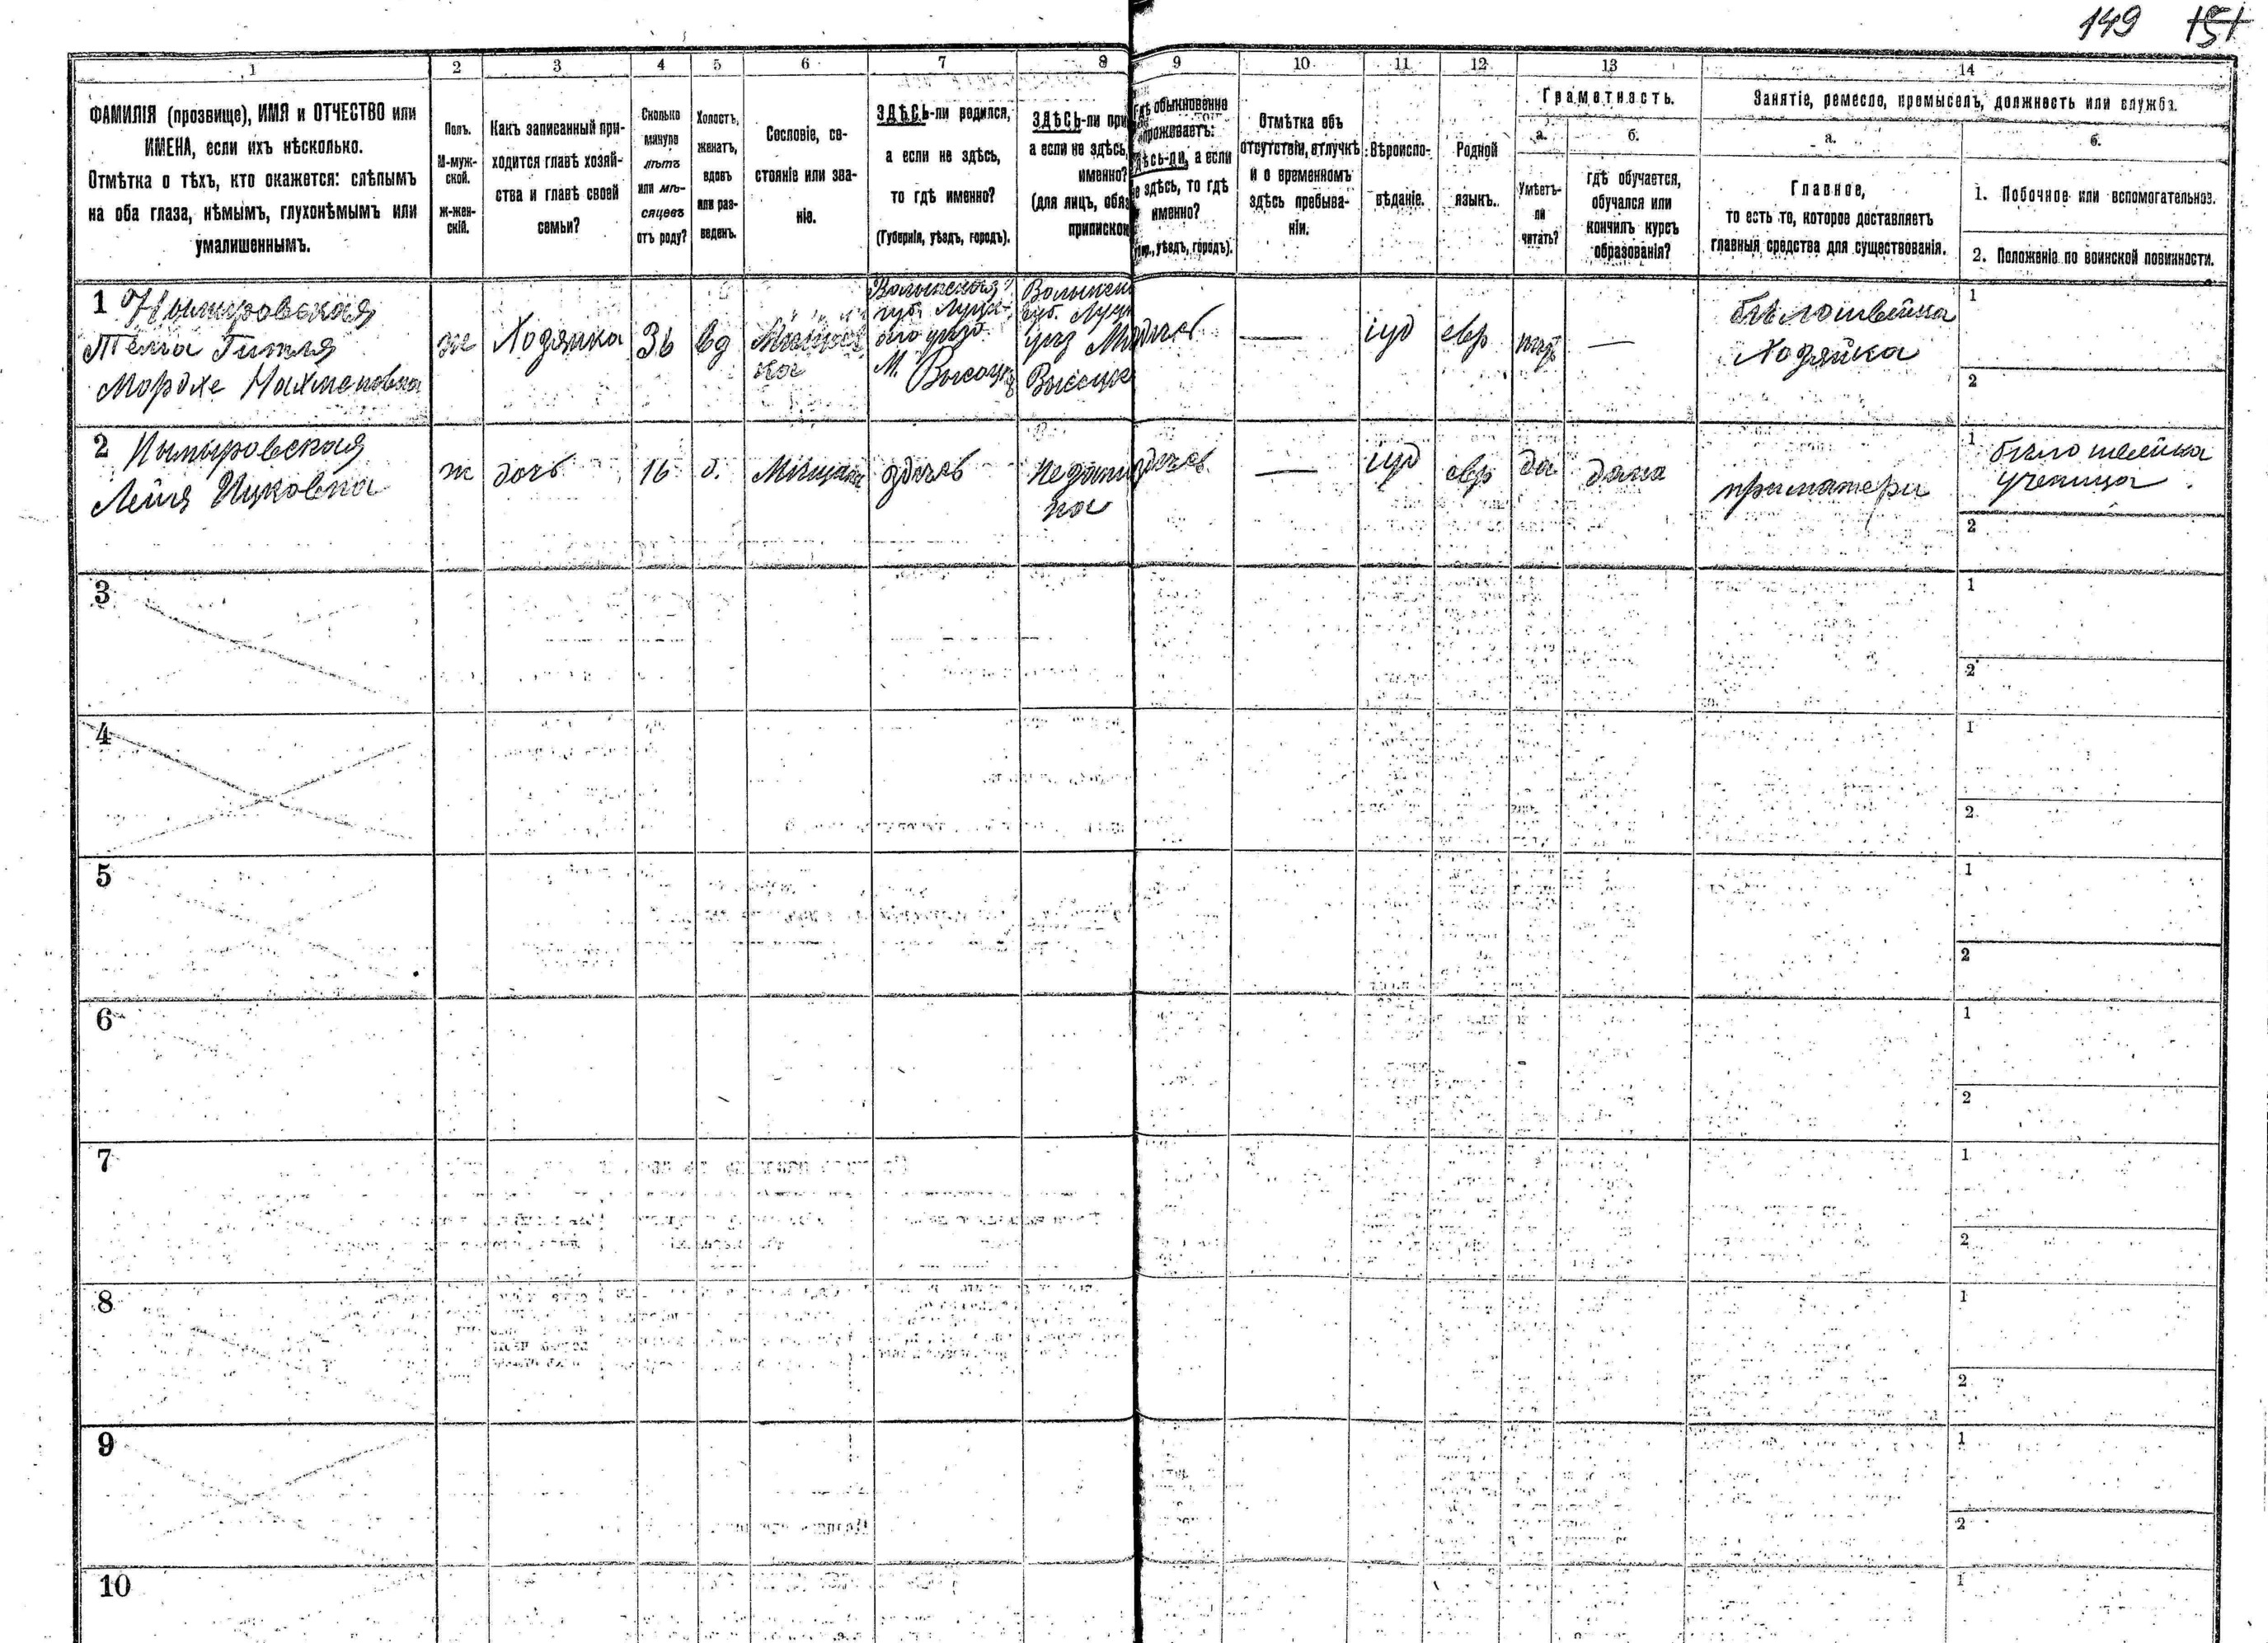 149 151
1 2 3 4 5 6 7 8 9 10 11 12 13 14
ФАМИЛІЯ (прозвище), ИМЯ и ОТЧЕСТВО или
ИМЕНА, если ихъ нѣсколько.
Отмѣтка о тѣхъ, кто окажется: слѣпымъ
на оба глаза, нѣмымъ, глухонѣмымъ или
умалишеннымъ.
Полъ.
М-муж-
ской.
Ж-жен-
скій.
Какъ записанный при-
ходится главѣ хозяй-
ства и главѣ своей
семьи?
Сколько
минуло
лѣтъ
или мѣ-
сяцевъ
отъ роду?
Холостъ,
женатъ,
вдовъ
или раз-
веденъ.
Сословіе, со-
стояніе или зва-
ніе.
ЗДѢСЬ-ли родился,
а если не здѣсь,
то гдѣ именно?
(Губернія, уѣздъ, городъ).
ЗДѢСЬ-ли при
а если не здѣсь,
именно?
(для лицъ, обяз
припискою
Гдѣ обыкновенно
проживаетъ:
здѣсь-ли, а если
не здѣсь, то гдѣ
именно?
уѣздъ, городъ).
Отмѣтка объ
отсутствіи, отлучкѣ
и о временномъ
здѣсь пребыва-
ніи.
Вѣроиспо-
вѣданіе.
Родной
языкъ.
Грамотность.
а.
Умѣетъ-
ли
читать?
б.
гдѣ обучается,
обучался или
кончилъ курсъ
образованія?
Занятіе, ремесло, промыселъ, должность или служба.
а.
Главное,
то есть то, которое доставляетъ
главныя средства для существованія.
б.
1. Побочное или вспомогательное.
2. Положеніе по воинской повинности.
1
Тема Гитля
Мордхе Нахмановна
ж
Хозяйка
36
вд
Мѣщанка
Волынская
губ. Луцка-
го уѣзд
М. Высоцк
Волынск
губ. Луцк
уѣз М
Высоцк
здѣсь
—
іуд
евр
—
бѣлошвейка
Хозяйка
1
2
2
Лейя Ицковна
ж
дочь
16
д.
Мѣщанка
здѣсь
здѣсь
—
іуд
евр
да
дома
при матери
1 бѣлошвейка
ученица
2
3
1
2
4
1
2
5
1
2
6
1
2
7
1
2
8
1
2
9
1
2
10
1